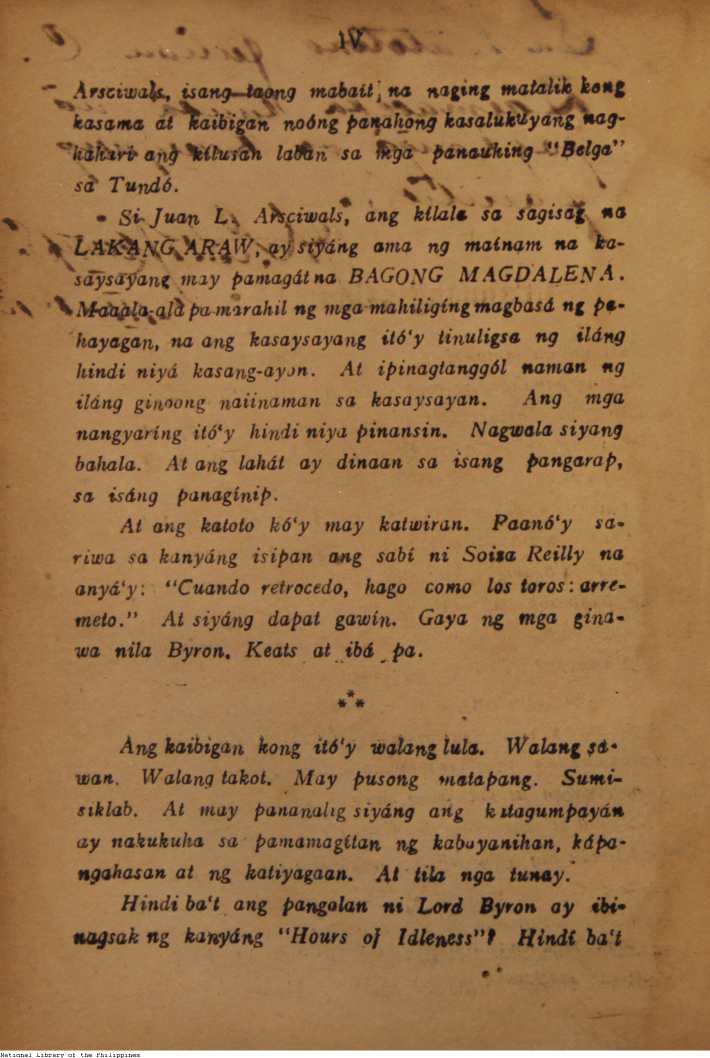 VI
Arsciwals, isang taong mabait, na naging matalik kong
kasama at kaibigan noóng panahong kasalukuyang nag-
kahari ang kilusan laban sa mga panauhing "Belga"
sa Tundó.
Si Juan L. Arsciwals, ang kilala sa sagisag na
LAKANG ARAW, ay siyáng ama ng mainam na ka-
saysayang may pamagát na BAGONG MAGDALENA.
Maaala-ala pa marahil ng mga mahiligíng magbasá ng pa-
hayagan, na ang kasaysayang itó'y tinuligsa ng iláng
hindi niyá kasang-ayon. At ipinagtanggól naman ng
iláng ginoong naiinaman sa kasaysayan. Ang mga
nangyaríng itó'y hindi niya pinansin. Nagwala siyang
bahala. At ang lahát ay dinaan sa isang pangarap,
sa isáng panagínip.
At ang katoto kó'y may katwiran. Paanó'y sa-
riwa sa kanyáng isipan ang sabí ni Soiza Reilly na
anyá'y: "Cuando retrocedo, hago como los toros: arre-
meto." At siyáng dapat gawín. Gaya ng mga gina-
wa nila Byron, Keats at ibá pa.
***
Ang kaibigan kong itó'y walang lula. Walang sa-
wan. Walang takot. May pusong matapang. Sumi-
siklab. At may pananalig siyáng ang katagumpayán
ay nakukuha sa pamamagítan ng kabayanihan, kápa-
ngahasan at ng katiyagaan. At tila nga tunay.
Hindi ba't ang pangalan ni Lord Byron ay ibi-
nagsak ng kanyáng "Hours of Idleness"? Hindí ba't
National Library of the Philippines